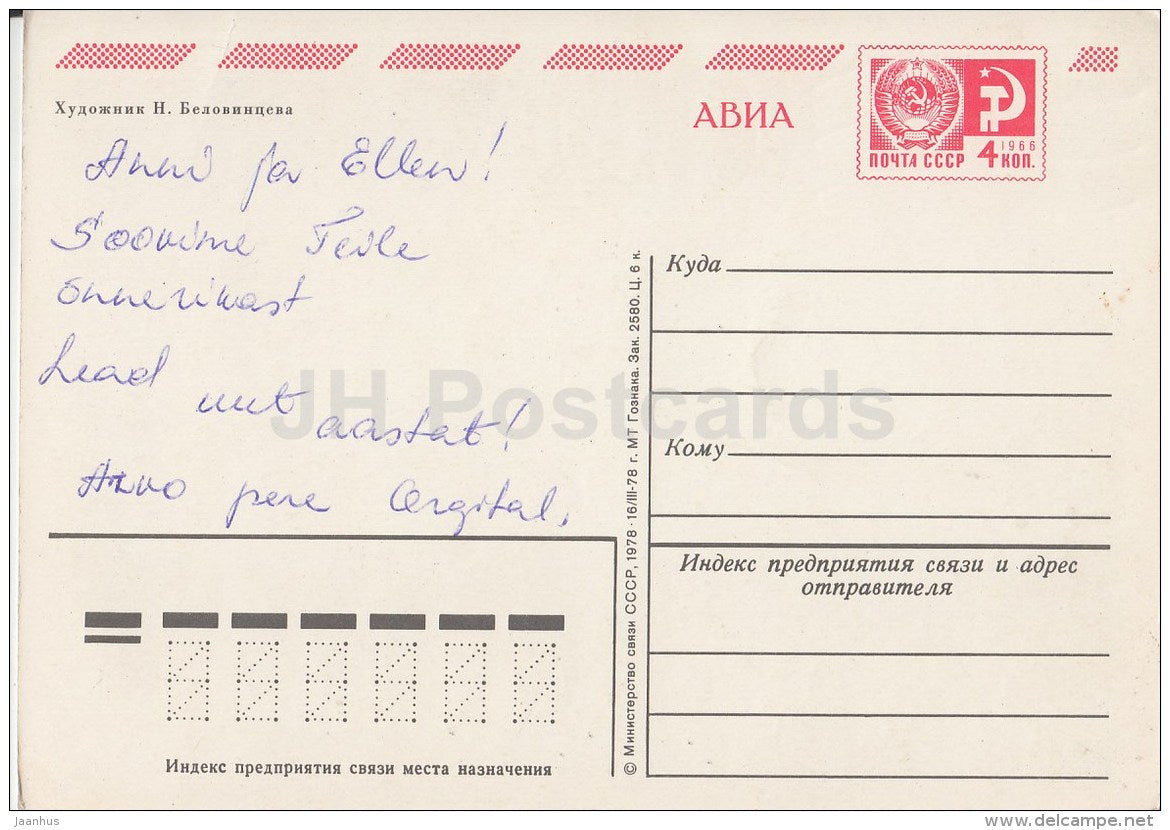 Художник Н. Беловинцева
АВИА
ПОЧТА СССР 4 1966 КОП.
Anni ja Ellen!
Soovime Teile
õnnerikast
head uut
aastat!
Arvo pere Orgital.
Куда
Кому
Индекс предприятия связи и адрес
отправителя
© Министерство связи СССР, 1978 · 16/III-78 г. МТ Гознака. Зак. 2580. Ц. 6 к.
Индекс предприятия связи места назначения
JH Postcards
Jaanhus
www.delcampe.net